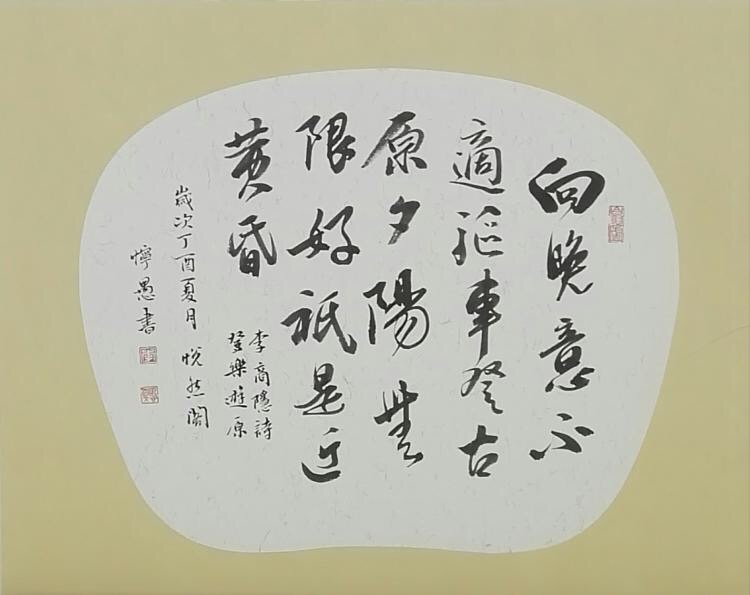 向晚意不
適驅車登古
原夕陽無
限好祇是近
黄昏
李商隱詩
登樂遊原
歲次丁酉夏月 悅然閣
愚書